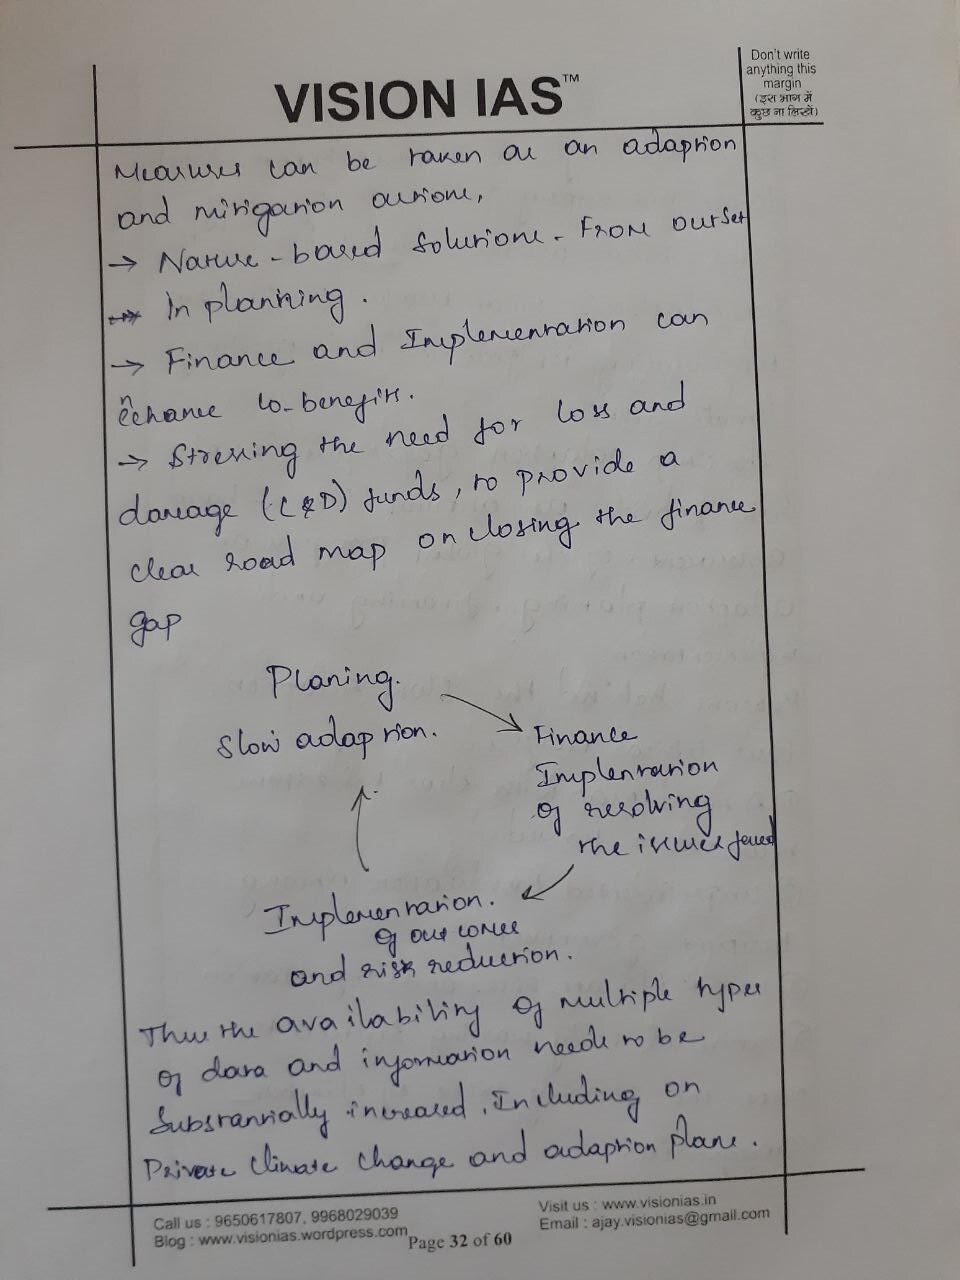 Don't write
anything this
margin
(इस भाग में
कुछ ना लिखें)
VISION IAS™
Measures can be taken as an adaption
and mitigation actions,
→ Nature-based Solutions - From outset
→ In planning.
→ Finance and Implementation can
enhance co-benefits.
→ Stressing the need for loss and
damage (L&D) funds, to provide a
clear road map on closing the finance
gap
Planing.
Slow adaption.
Finance
Implentation
of resolving
the issues faced
Implementation.
of outcomes
and risk reduction.
Thus the availability of multiple types
of data and information needs to be
Substantially increased, Including on
Private climate change and adaption plans.
Call us : 9650617807, 9968029039
Visit us : www.visionias.in
Blog : www.visionias.wordpress.com
Page 32 of 60
Email : ajay.visionias@gmail.com